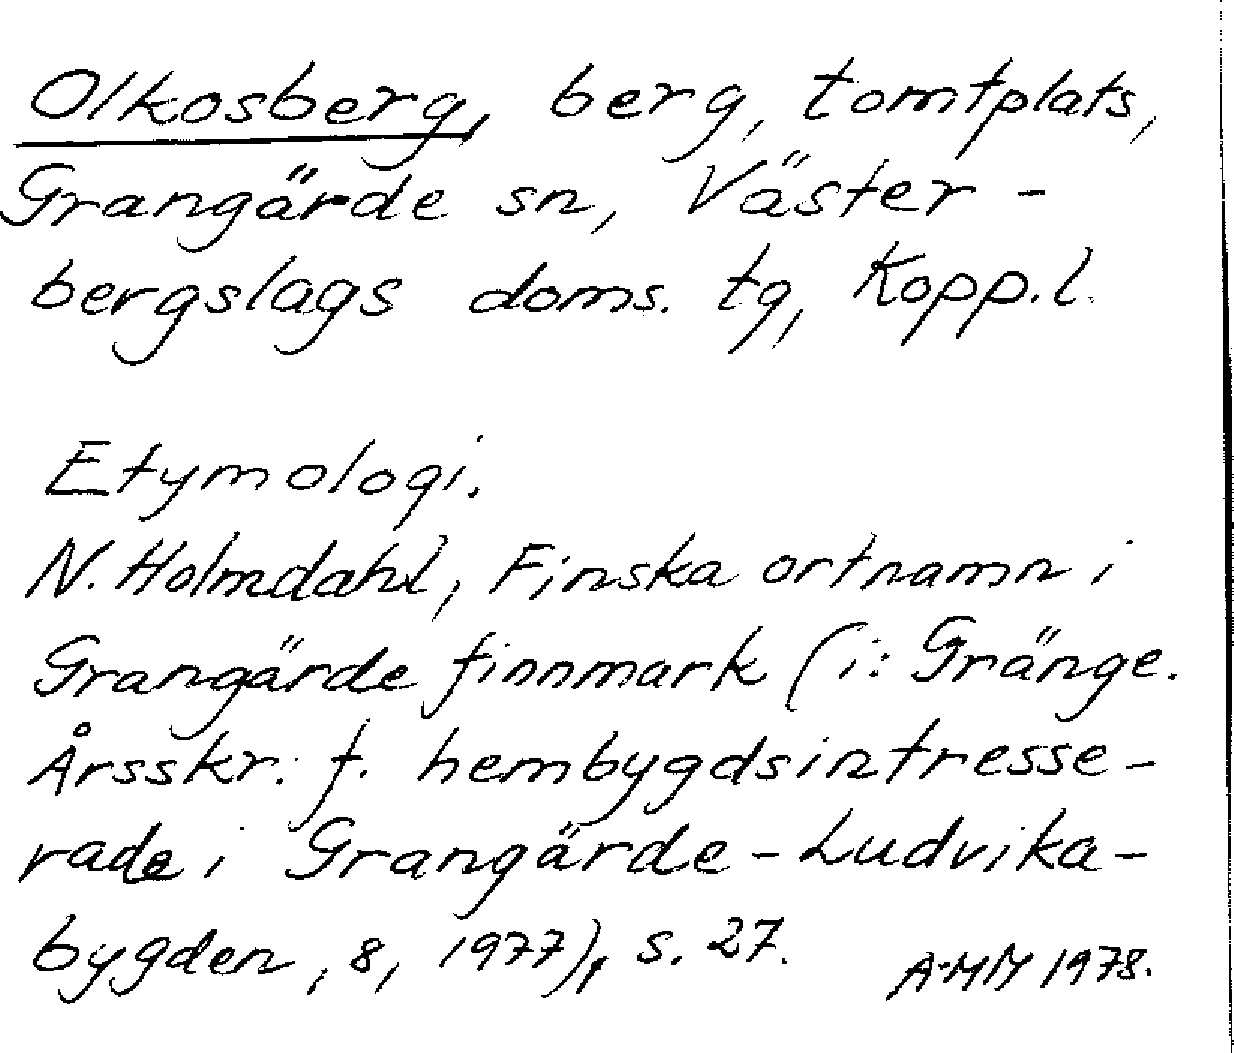 Olkosberg, berg, tomtplats,
Grangärde sn, Väster-
bergslags doms. tg, Kopp.l.
Etymologi.
N. Holmdahl, Finska ortnamn i
Grangärde finnmark (i: Gränge.
Årsskr. f. hembygdsintresse-
rade i Grangärde-Ludvika-
bygden, 8, 1977), s. 27.
A-MM 1978.